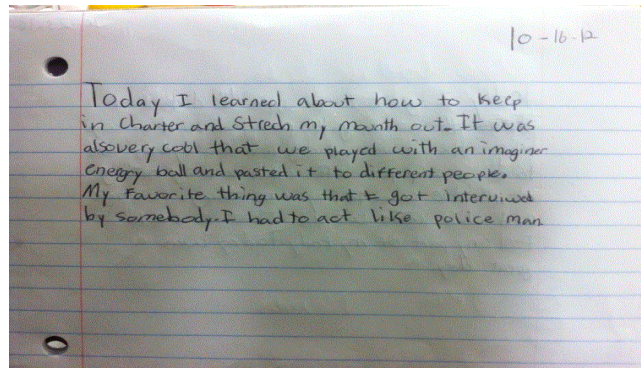 10-16-12
Today I learned about how to keep
in Charter and Strech my mouth out. It was
also very cool that we played with an imaginer
energy ball and pasted it to different people.
My favorite thing was that I got interviwed
by somebody. I had to act like police man